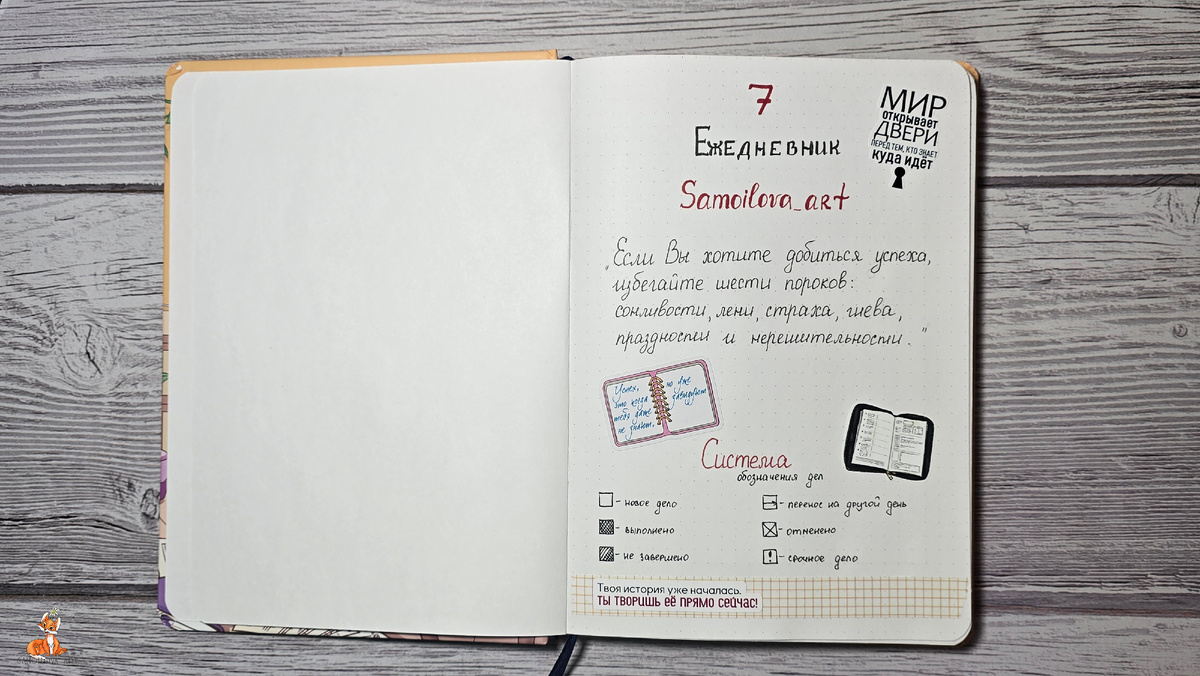 7
Ежедневник
Samoilova_art
МИР
открывает
ДВЕРИ
ПЕРЕД ТЕМ, КТО ЗНАЕТ
куда идёт
„Если Вы хотите добиться успеха,
избегайте шести пороков:
сонливости, лени, страха, гнева,
праздности и нерешительности."
Успех,
это когда
тебя даже
не знают,
но уже
завидуют
Система
обозначения дел
- новое дело
- выполнено
- не завершено
- перенос на другой день
- отменено
! - срочное дело
Твоя история уже началась.
ТЫ ТВОРИШЬ ЕЁ ПРЯМО СЕЙЧАС!